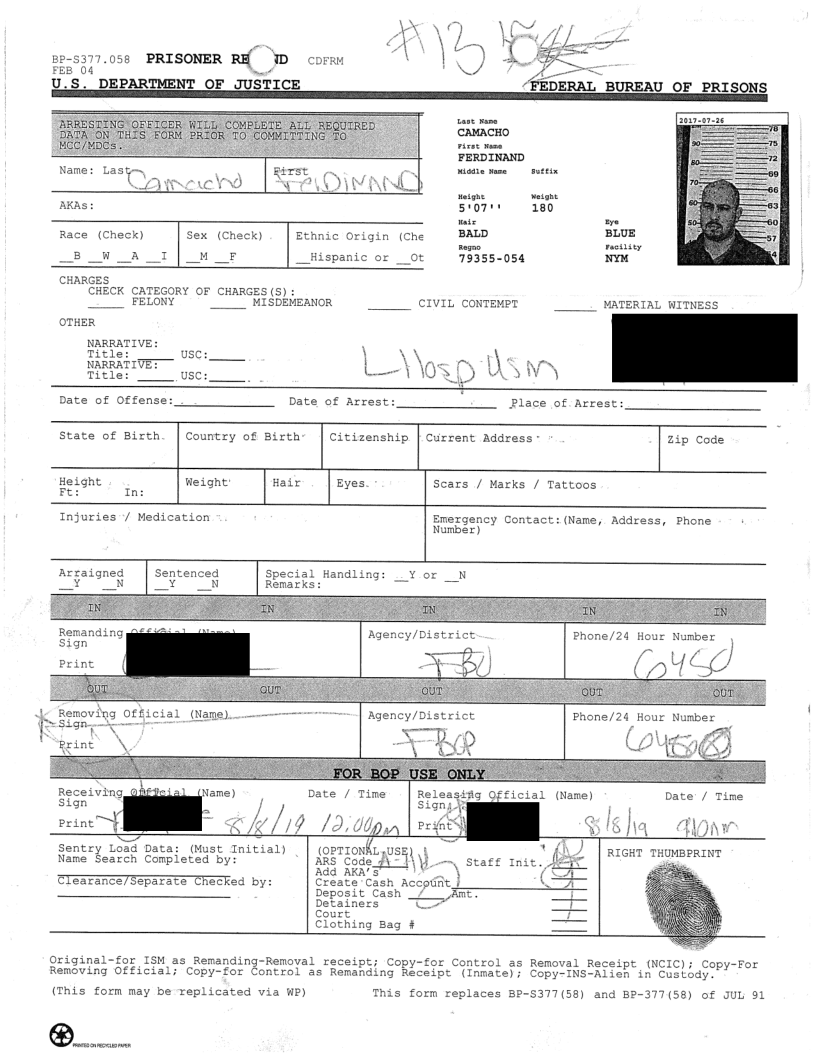 #13
BP-S377.058 PRISONER RE ND CDFRM
FEB 04
U.S. DEPARTMENT OF JUSTICE FEDERAL BUREAU OF PRISONS
ARRESTING OFFICER WILL COMPLETE ALL REQUIRED
DATA ON THIS FORM PRIOR TO COMMITTING TO
MCC/MDCs.
Name: Last Camacho First FERDINAND
AKAs:
Race (Check) Sex (Check) Ethnic Origin (Che
__B __W __A __I __M __F __Hispanic or __Ot
Last Name
CAMACHO
First Name
FERDINAND
Middle Name Suffix
Height Weight
5'07'' 180
Hair Eye
BALD BLUE
Regno Facility
79355-054 NYM
2017-07-26
78
90 75
80 72
69
70 66
60 63
50 60
57
CHARGES
CHECK CATEGORY OF CHARGES(S):
_____ FELONY _____ MISDEMEANOR _____ CIVIL CONTEMPT _____ MATERIAL WITNESS
OTHER
NARRATIVE:
Title: _____ USC:_____
NARRATIVE:
Title: _____ USC:_____
L Hosp
Date of Offense:__________ Date of Arrest:__________ Place of Arrest:__________
State of Birth Country of Birth Citizenship Current Address Zip Code
Height Weight Hair Eyes Scars / Marks / Tattoos
Ft: In:
Injuries / Medication Emergency Contact:(Name, Address, Phone
Number)
Arraigned Sentenced Special Handling: __Y or __N
__Y __N __Y __N Remarks:
IN IN IN IN IN
Remanding Official (Name) Agency/District Phone/24 Hour Number
Sign
Print 6450
OUT OUT OUT OUT OUT
Removing Official (Name) Agency/District Phone/24 Hour Number
Sign
Print FBOP
FOR BOP USE ONLY
Receiving Official (Name) Date / Time Releasing Official (Name) Date / Time
Sign Sign
Print 8/8/19 12:00pm Print 8/8/19 910Am
Sentry Load Data: (Must Initial)
Name Search Completed by:
Clearance/Separate Checked by:
(OPTIONAL USE)
ARS Code Staff Init.
Add AKA's
Create Cash Account
Deposit Cash _____Amt.
Detainers
Court
Clothing Bag #
RIGHT THUMBPRINT
Original-for ISM as Remanding-Removal receipt; Copy-for Control as Removal Receipt (NCIC); Copy-For
Removing Official; Copy-for Control as Remanding Receipt (Inmate); Copy-INS-Alien in Custody.
(This form may be replicated via WP) This form replaces BP-S377(58) and BP-377(58) of JUL 91
PRINTED ON RECYCLED PAPER